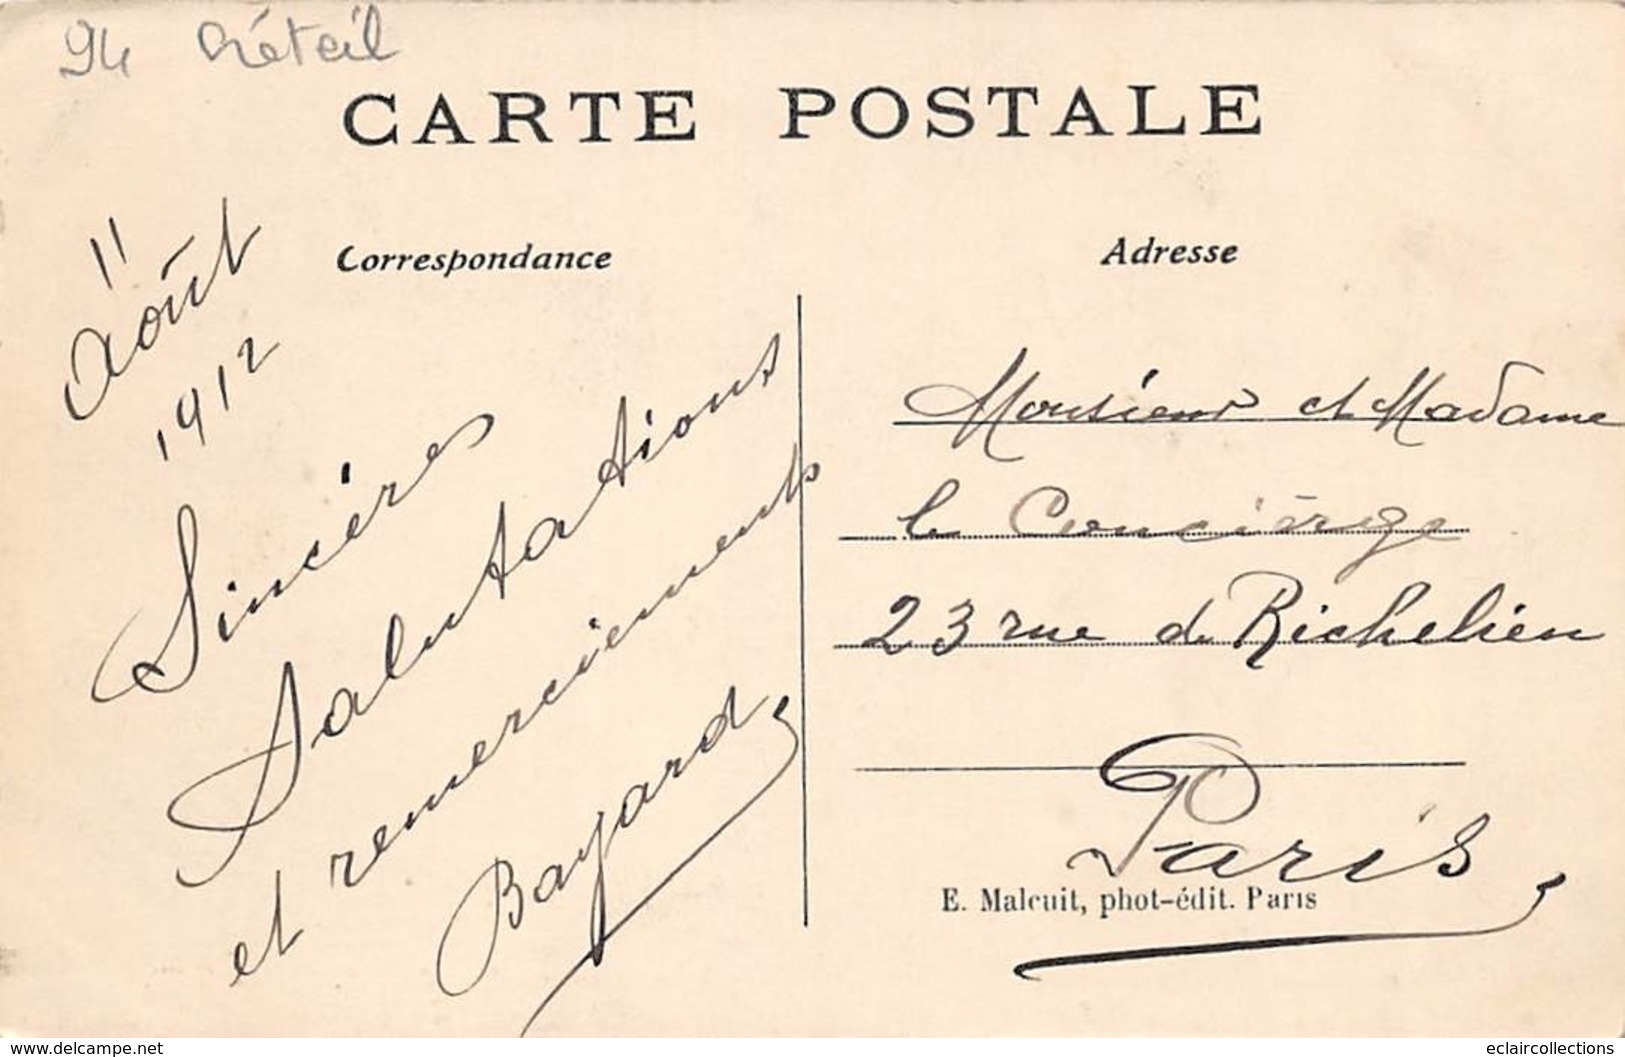 94 Créteil
CARTE POSTALE
Correspondance
Adresse
11
Août
1912
Sincères
Salutations
et remerciements
Bayard
Monsieur et Madame
le Concierge
23 rue de Richelieu
Paris
E. Malcuit, phot-édit. Paris
www.delcampe.net
eclaircollections